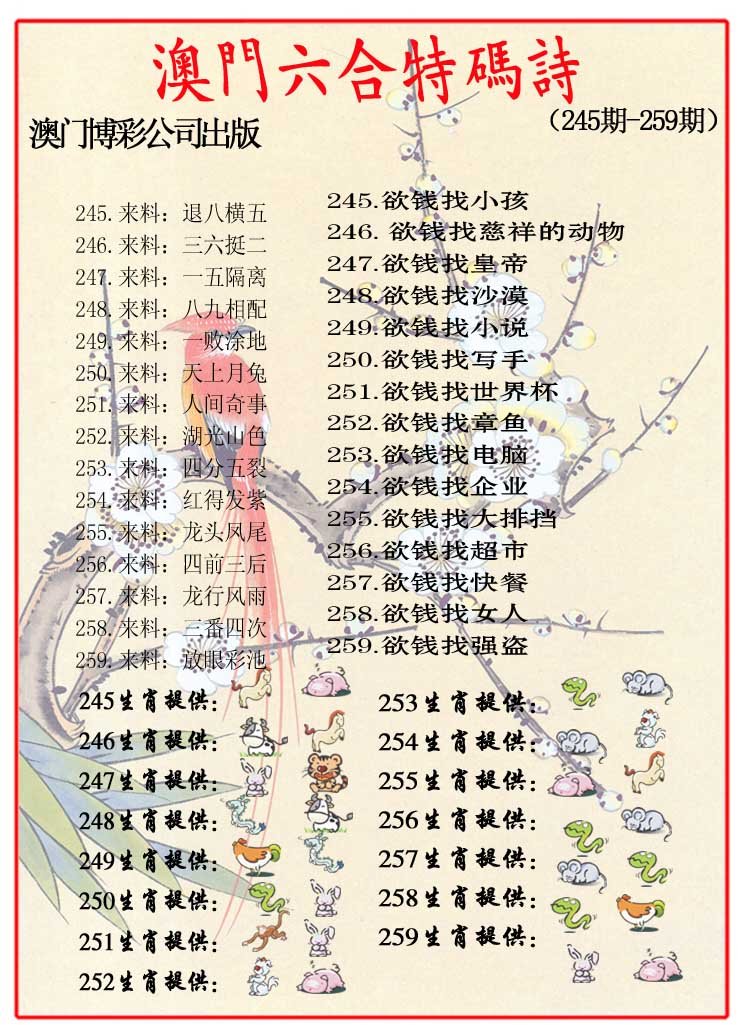 澳門六合特碼詩
澳门博彩公司出版
（245期-259期）
245.来料：退八横五
246.来料：三六挺二
247.来料：一五隔离
248.来料：八九相配
249.来料：一败涂地
250.来料：天上月兔
251.来料：人间奇事
252.来料：湖光山色
253.来料：四分五裂
254.来料：红得发紫
255.来料：龙头凤尾
256.来料：四前三后
257.来料：龙行风雨
258.来料：三番四次
259.来料：放眼彩池
245.欲钱找小孩
246. 欲钱找慈祥的动物
247.欲钱找皇帝
248.欲钱找沙漠
249.欲钱找小说
250.欲钱找写手
251.欲钱找世界杯
252.欲钱找章鱼
253.欲钱找电脑
254.欲钱找企业
255.欲钱找大排挡
256.欲钱找超市
257.欲钱找快餐
258.欲钱找女人
259.欲钱找强盗
245生肖提供：
246生肖提供：
247生肖提供：
248生肖提供：
249生肖提供：
250生肖提供：
251生肖提供：
252生肖提供：
253生肖提供：
254生肖提供：
255生肖提供：
256生肖提供：
257生肖提供：
258生肖提供：
259生肖提供：